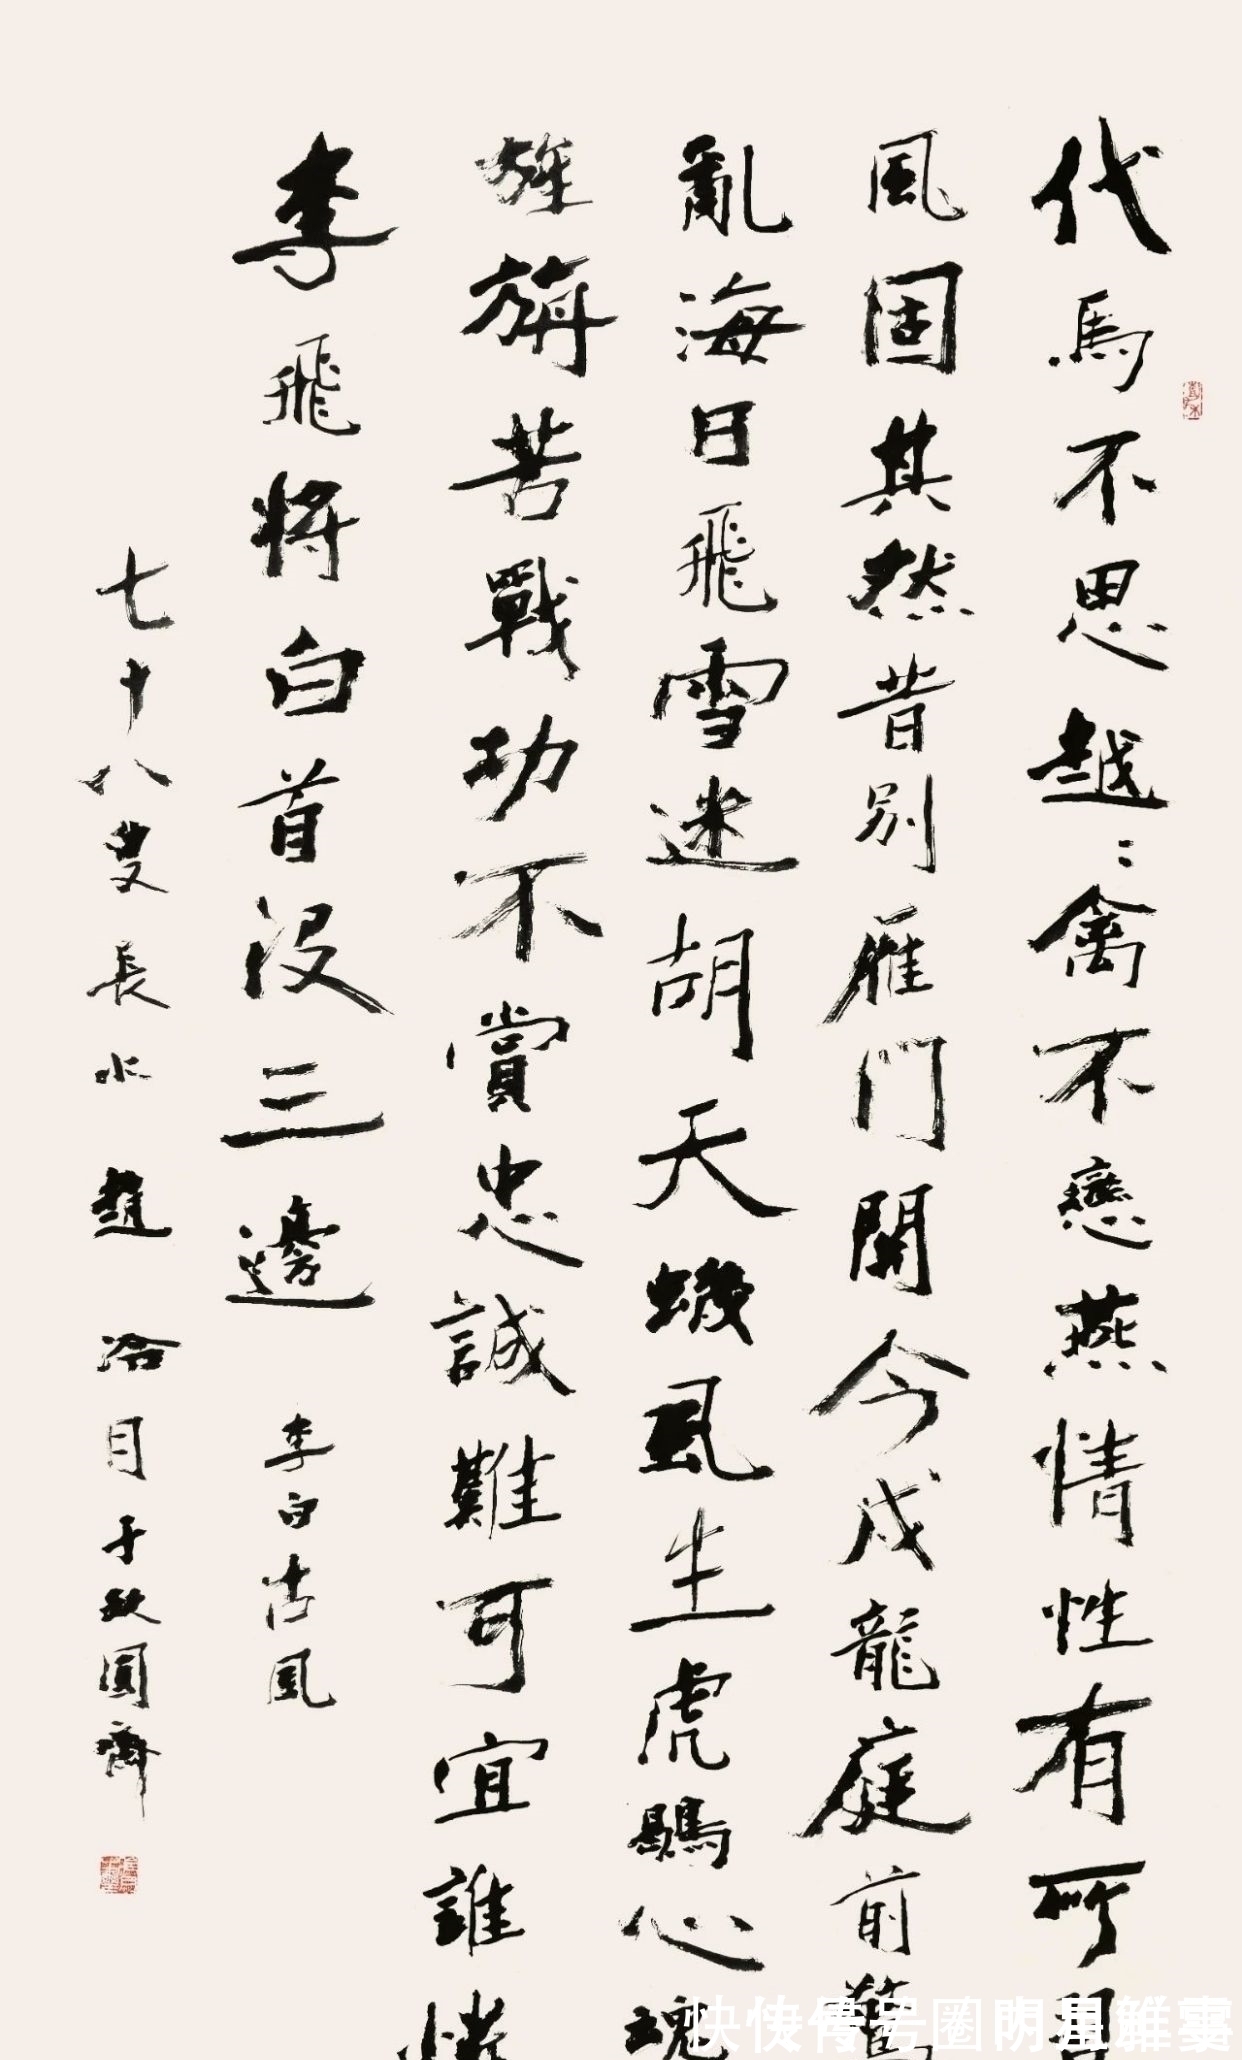 代馬不思越〻禽不戀燕情性有所習
風固其然昔別雁門關今戍龍庭前驚
亂海日飛雪迷胡天蟣虱生虎鶡心魂
旌旃苦戰功不賞忠誠難可宜誰憐
李飛將白首沒三邊 李白古風
七十八叟長水趙冷月于缺圓齋